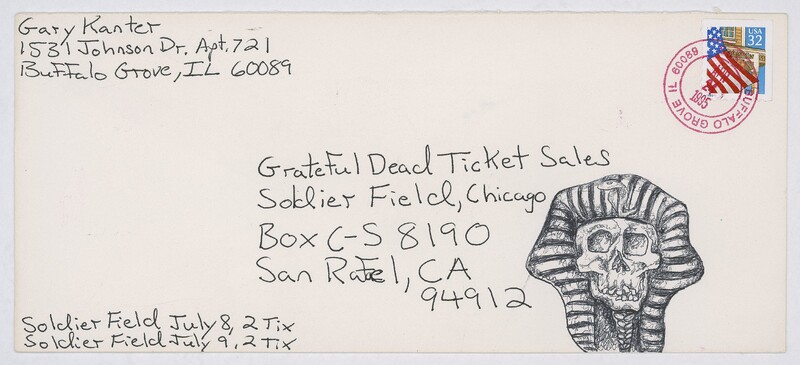 Gary Kanter
1531 Johnson Dr. Apt. 721
Buffalo Grove, IL 60089
USA
32
BUFFALO GROVE IL 60089
1995
Grateful Dead Ticket Sales
Soldier Field, Chicago
Box C-S 8190
San Rafael, CA
94912
Soldier Field July 8, 2 Tix
Soldier Field July 9, 2 Tix